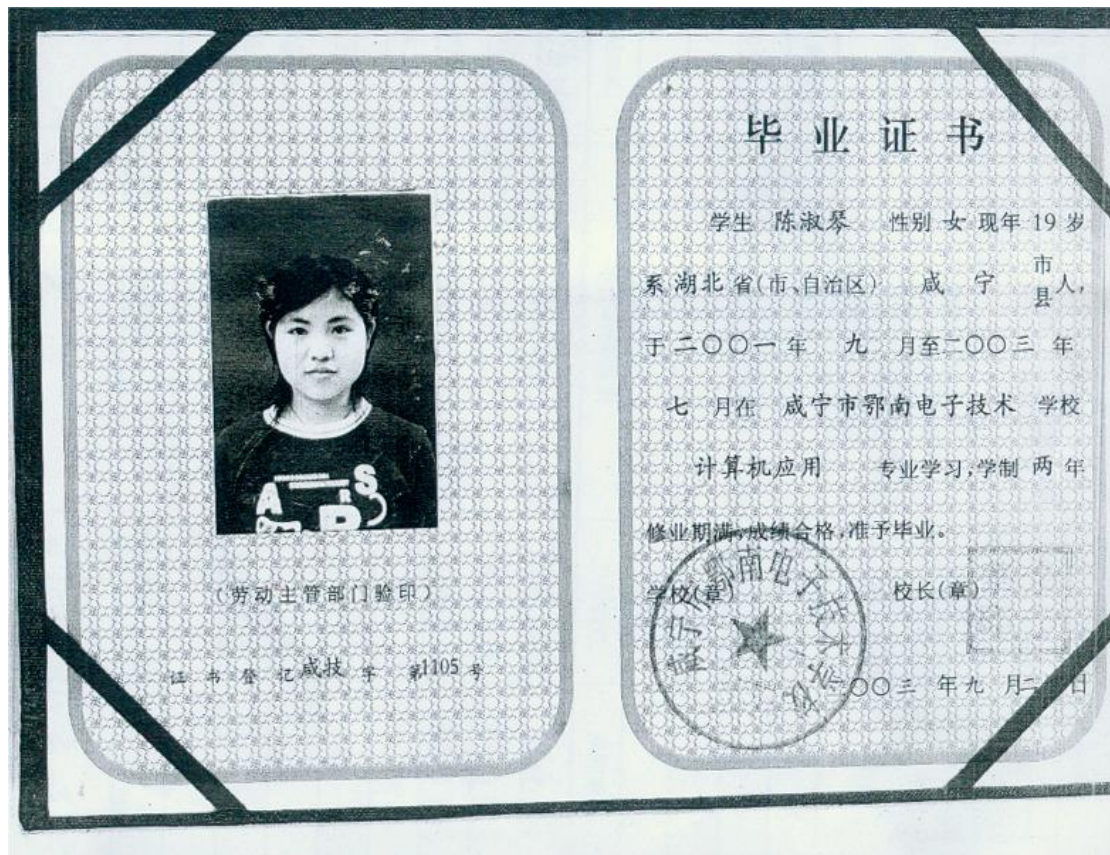 A S
R
(劳动主管部门验印)
证 书 登 记 咸技 字 第1105 号
毕 业 证 书
学生 陈淑琴 性别 女 现年 19 岁
系 湖北 省(市、自治区) 咸 宁 市县 人,
于 二〇〇一 年 九 月至 二〇〇三 年
七 月在 咸宁市鄂南电子技术 学校
计算机应用 专业学习,学制 两 年
修业期满,成绩合格,准予毕业。
学校(章) 校长(章)
咸宁市鄂南电子技术学校
〇〇三 年 九 月 二 日